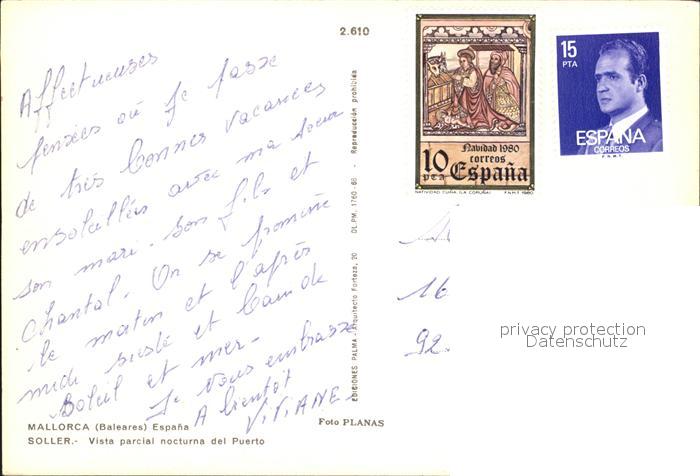 2.610
Affectueuses
pensées où je passe
de très bonnes vacances
ensoleillées avec ma sœur
son mari. son fils et
Chantal. On se promène
le matin et l'après
midi sieste et bain de
Soleil et mer -
Je vous embrasse
A bientôt
VIVIANE -
MALLORCA (Baleares) España
SOLLER.- Vista parcial nocturna del Puerto
Foto PLANAS
EDICIONES PALMA - Arquitecto Forteza, 20 DL.PM. 1760-68 - Reproducción prohibida
Navidad 1980
10 correos
pta España
NATIVIDAD CUIÑA (LA CORUÑA) F.N.M.T. 1980
15
PTA
ESPAÑA
CORREOS
F.N.M.T.
16
92.
privacy protection
Datenschutz